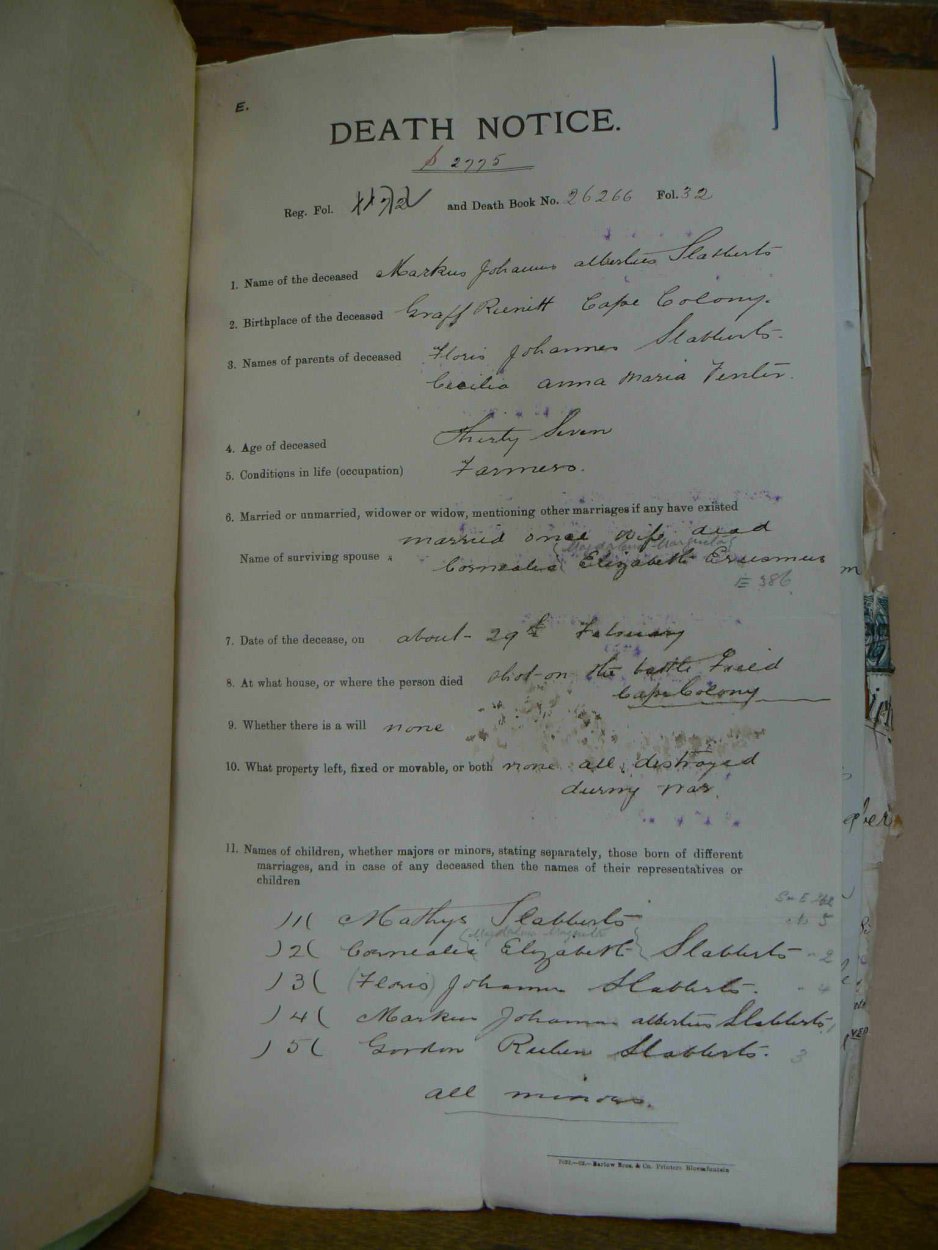 E.
DEATH NOTICE.
S 2775
Reg. Fol. and Death Book No. 26266 Fol. 32
1. Name of the deceased Markus Johannes albertus Slabberts
2. Birthplace of the deceased Graff Reinett Cape Colony.
3. Names of parents of deceased Floris Johannes Slabberts.
Cecilia anna Maria Venter.
4. Age of deceased Thirty Seven
5. Conditions in life (occupation) Farmers.
6. Married or unmarried, widower or widow, mentioning other marriages if any have existed
married once wife dead
Magdalena Margrieta
Name of surviving spouse Cornealia Elizabeth Erasmus
E 386
7. Date of the decease, on about 29th February
8. At what house, or where the person died shot on the battle Field
Cape Colony
9. Whether there is a will none
10. What property left, fixed or movable, or both none all destroyed
during war.
11. Names of children, whether majors or minors, stating separately, those born of different
marriages, and in case of any deceased then the names of their representatives or
children
)1( Mathys Slabberts 5
)2( Cornealia Elizabeth Slabberts 2
)3( (Floris) Johannes Slabberts. 4
)4( Markus Johannes albertus Slabberts
)5( Gordon Ruben Slabberts. 3
all minors.
Barlow Bros. & Co. Printers Bloemfontein